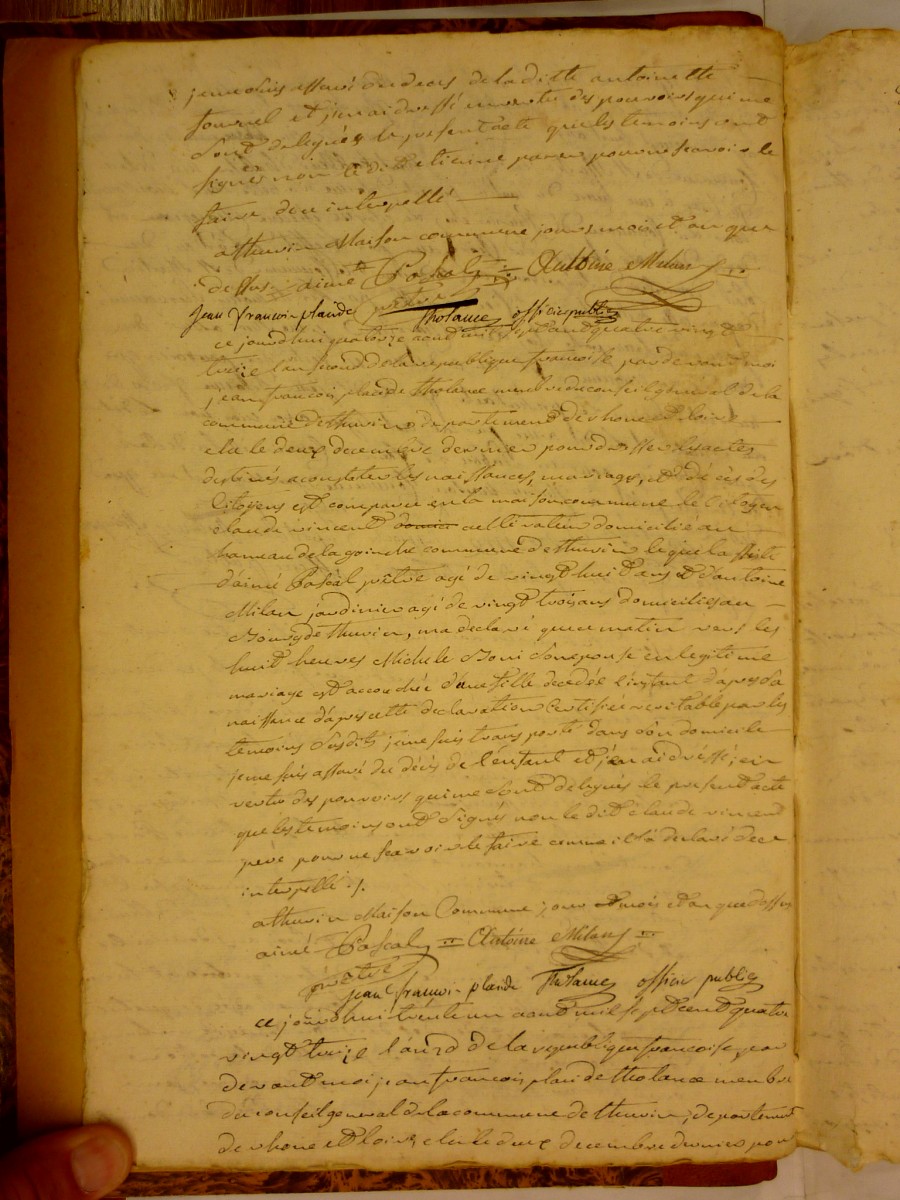 je me suis assuré du deces de laditte antoinette
tournel et j'en ai dressé en vertu des pouvoirs qui me
sont delegués le present acte que les temoins ont
signés non ledit etienne pour ne scavoir le
faire de ce interpellé
a thurin Maison commune jours mois et an que
dessus aimé Pascal Antoine Milan
prêtre
jean francois placide tholance officier public
ce jourd'hui quatorze aout mil sept cent quatre vingt
treize l'an second de la republique francoise par devant moi
jean françois placide tholance membre du conseil general de la
commune de thurin departement de rhone et loire
elu le deux decembre dernier pour dresser les actes
destinés a constater les naissances, mariages, et décès des
Citoyens est comparu en la maison commune le Citoyen
claude vincent cultivateur domicilié au
hameau de la goinche commune de thurin lequel assisté
d'aimé Pascal prêtre agé de vingt huit ans et d'antoine
Milan jardinier agé de vingt trois ans domiciliés au
Bourg de thurin, m'a declaré que ce matin vers les
huit heures Michele Boni son epouse en legitime
mariage est accouchée d'une fille decedée l'instant d'apres sa
naissance d'apres cette declaration certifiée veritable par les
temoins susdits je me suis transporté dans son domicile
je me suis assuré du décès de l'enfant et j'en ai dressé, en
vertu des pouvoirs qui me sont delegués le present acte
que les temoins ont signés non le dit claude vincent
pere pour ne scavoir le faire comme il l'a declaré de ce
interpellé ./.
a thurin Maison Commune jour et mois et an que dessus
aimé Pascal Antoine Milan
prêtre
jean françois placide tholance officier public
ce jourd'hui trente un aout mil sept cent quatre
vingt treize l'an 2d de la republique francoise, par
devant moi jean francois placide tholance membre
du conseil general de la commune de thurin, departement
de rhone et loire, elu le deux decembre dernier pour